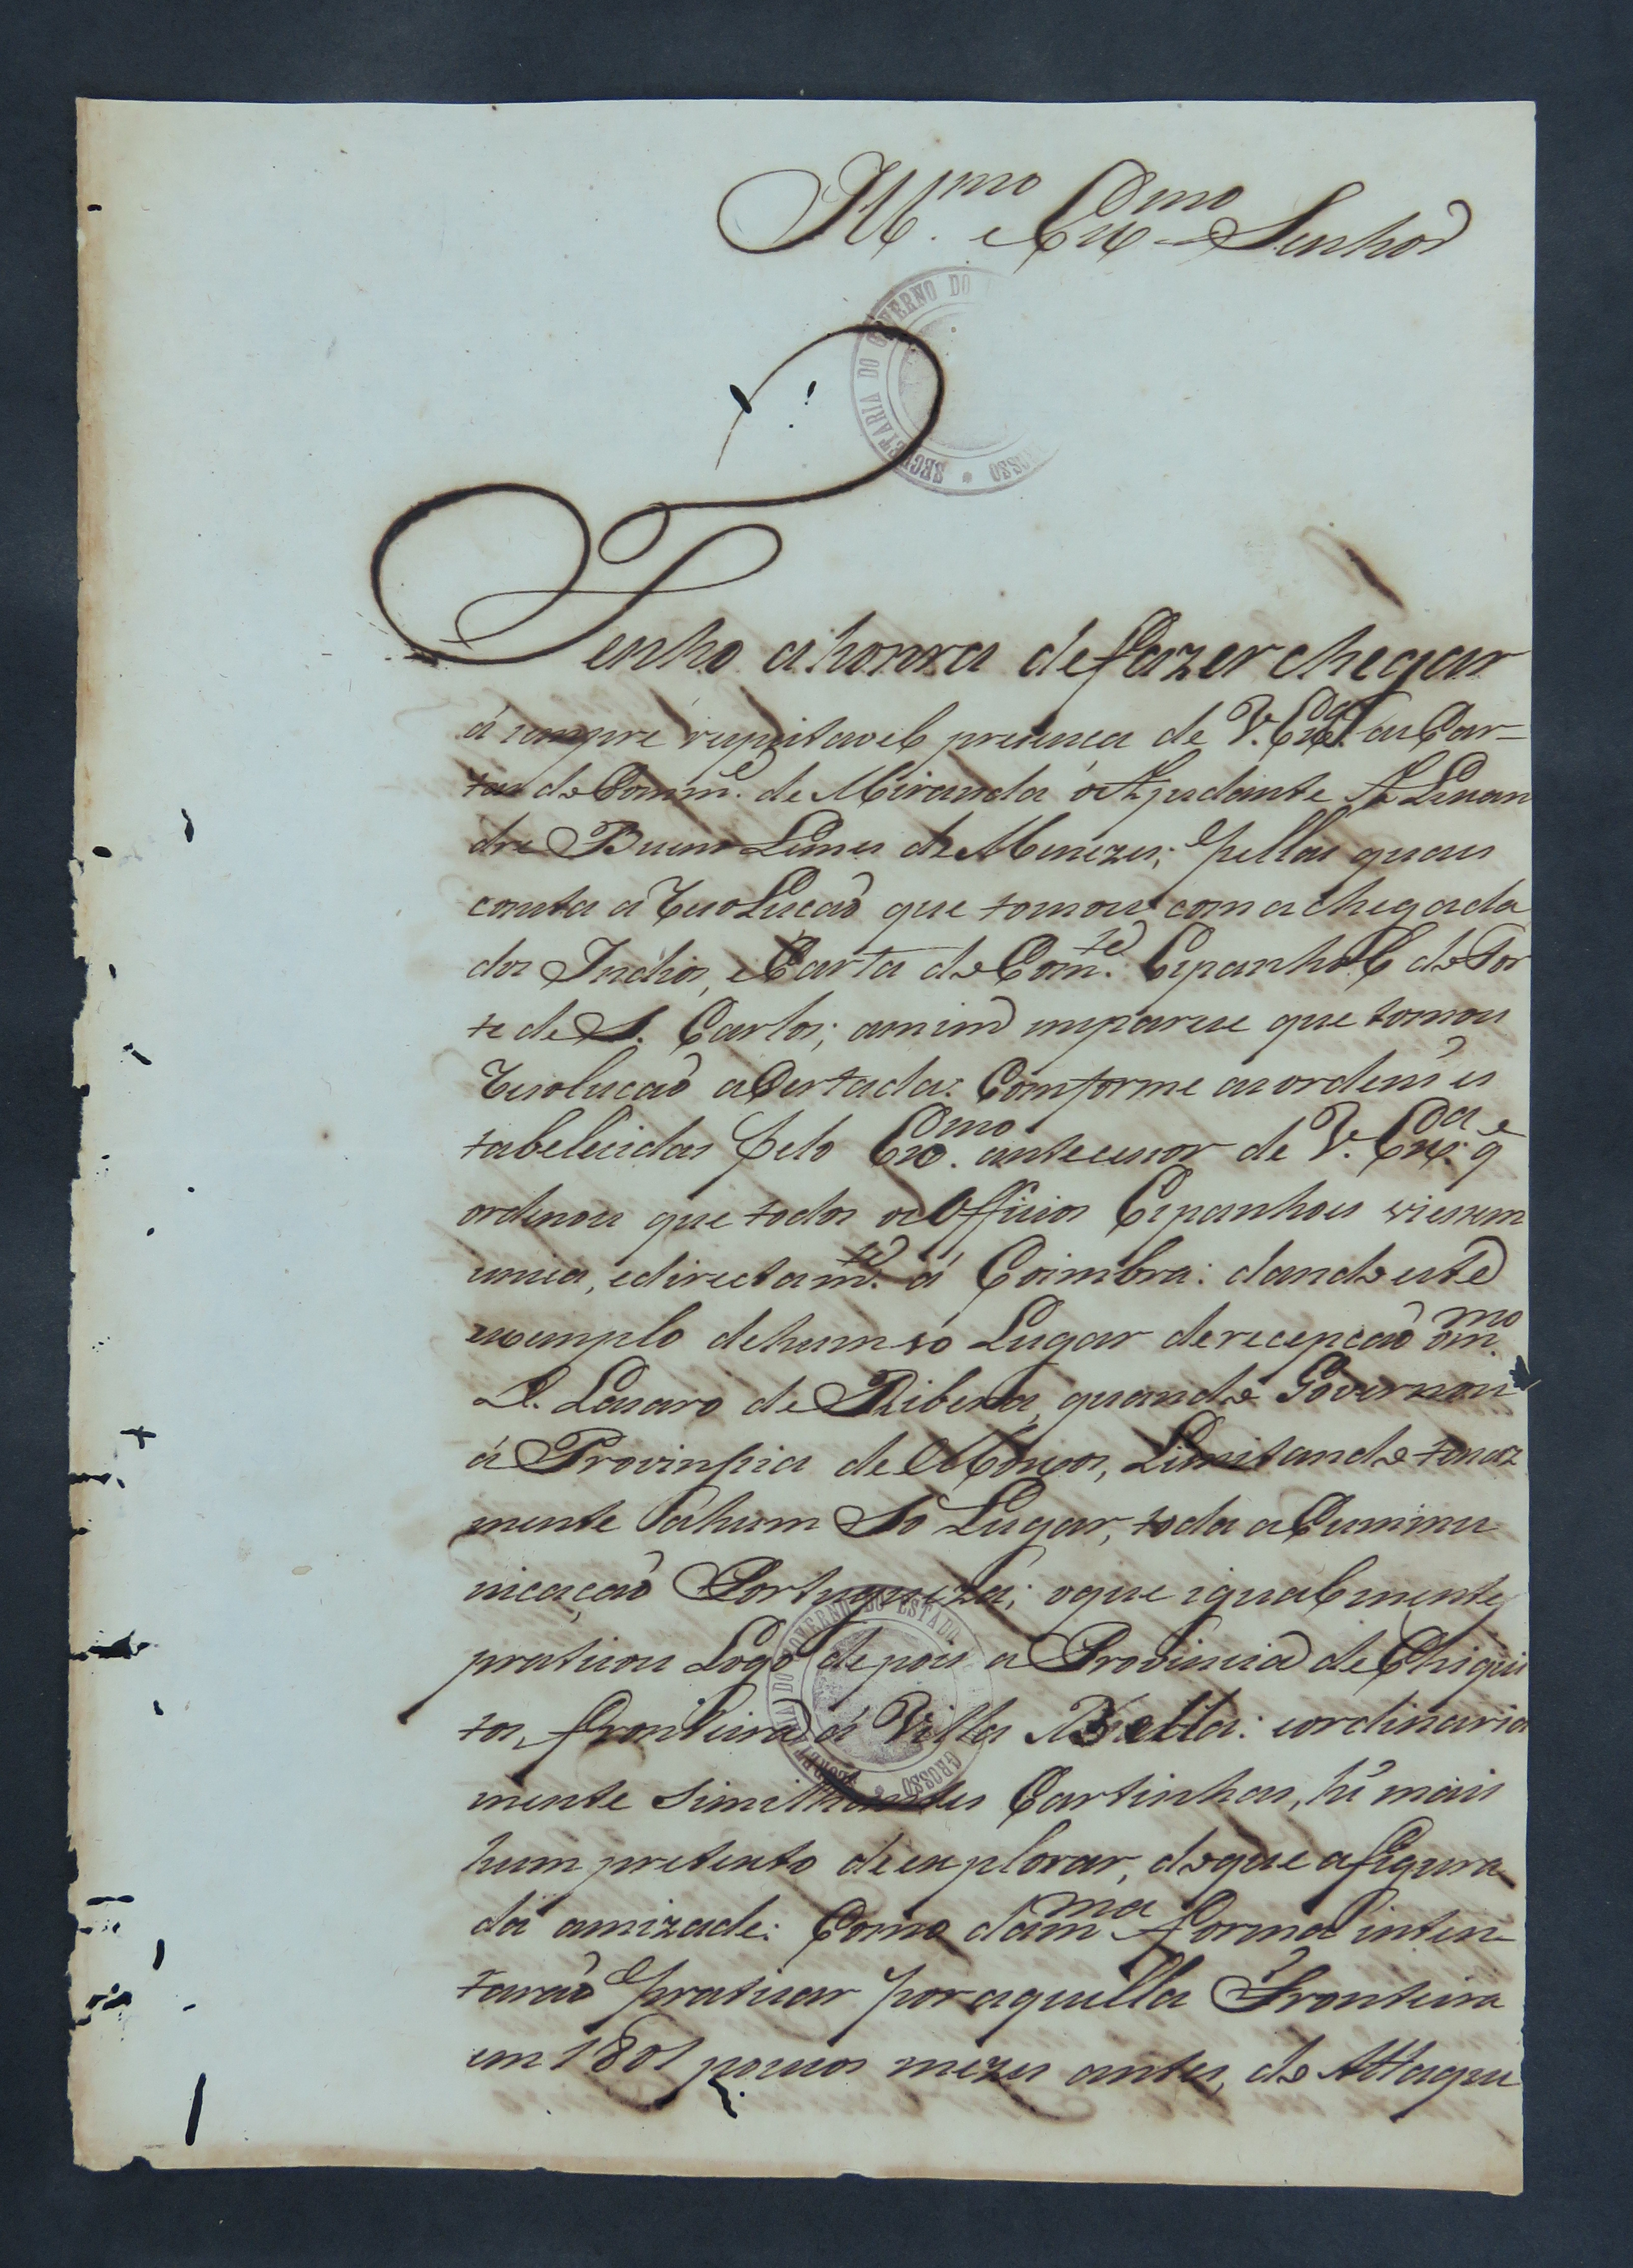 Ill.mo e Ex.mo Senhor
SECRETARIA DO GOVERNO DO
OSSO
Tenho a honra de fazer chegar
á sempre respeitavel prezença de V. Ex.a as Car=
tas do Comm.e de Miranda o Ajudante Alexan
dre Bueno Lemes de Menezes; pellas quaes
consta a rezoLução que tomou com a chegada
dos Indios, e Carta do Com.te Espanhol do For
te de S. Carlos; a mim me parece que tomou
rezolução aCertada: Comforme as ordens es
tabelecidas pelo Ex.mo antecessor de V. Ex.a q.e
ordenou que todos os Officios Espanhoes viessem
unica, e directam.te á Coimbra: dando este
exemplo de hum só Lugar de recepção o m.mo
D. Lazaro de Ribera, quando Governou
a Provinsia de Moxos, Limitando tenaz
mente á hum Só Lugar, toda a Cummu
nicação Portugueza; o que igualmente
praticou Logo depois a Provincia de Chiqui
tos, fronteira á Villa Bella: e ordinaria
mente Similhantes Cartinhas, hé mais
hum pretexto de explorar, do que afigura
da amizade: Como da m.ma forma inten
tarão praticar por aquella Fronteira
em 1801 poucos mezes antes, do Attaque
SECRETARIA DO GOVERNO DO ESTADO
GROSSO